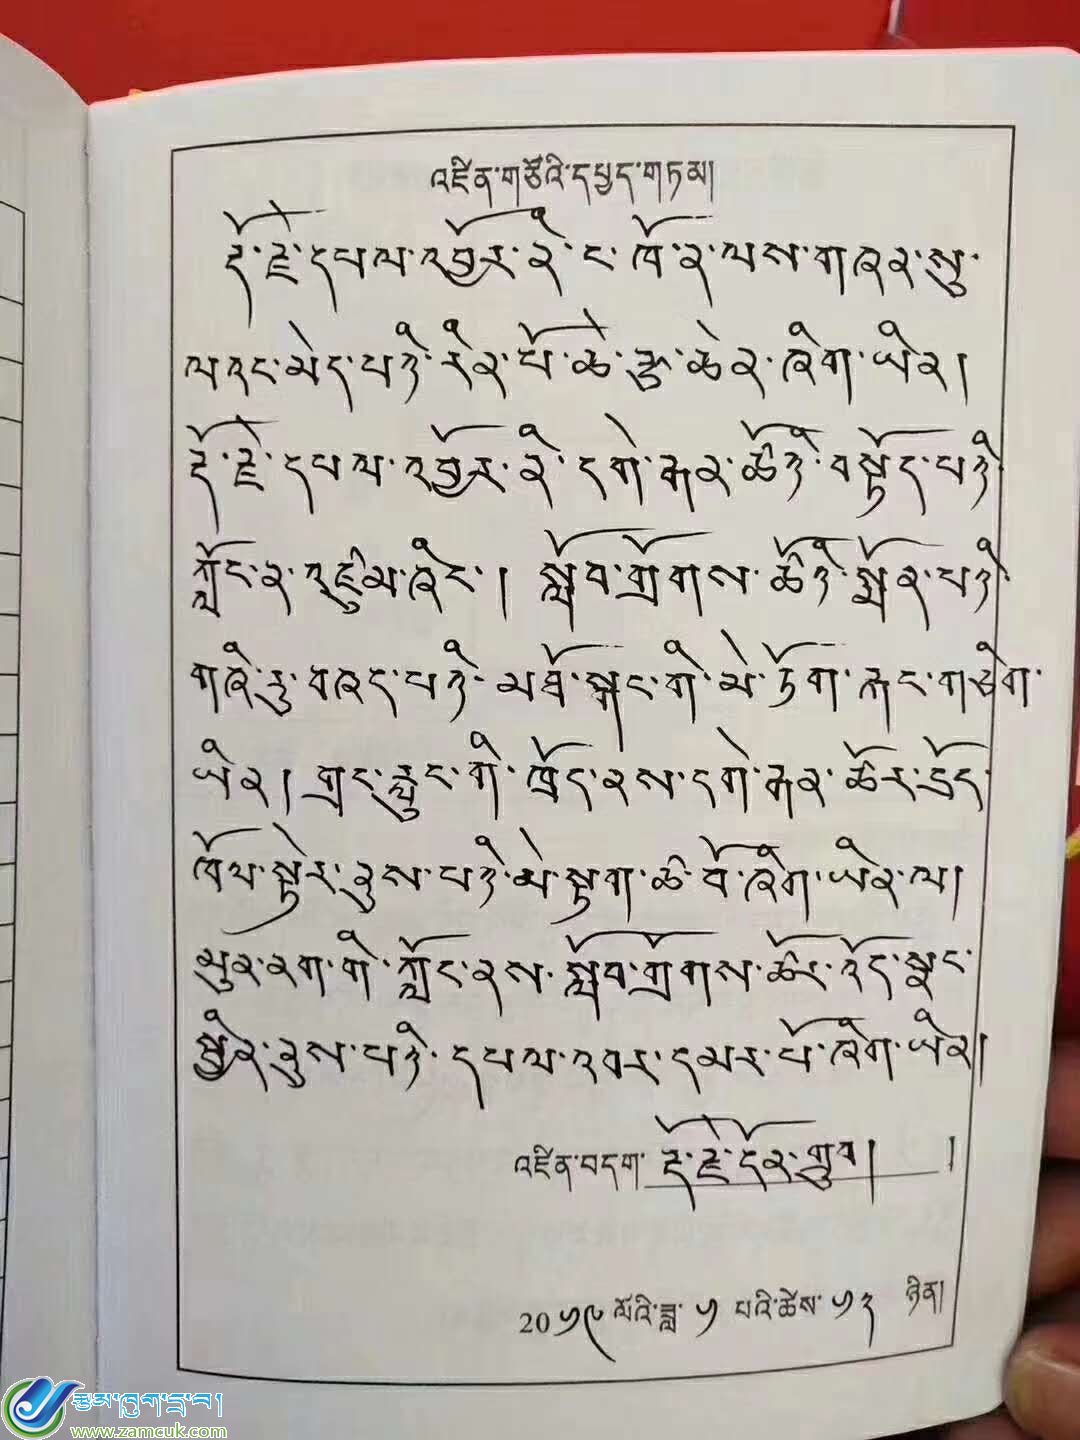 འཛིན་གཙོའི་དཔྱད་གཏམ།
རྡོ་རྗེ་དཔལ་འབྱོར་ནི་ང་ཁོ་ན་ལས་གཞན་སུ་
ལའང་མེད་པའི་རིན་པོ་ཆེ་རྩ་ཆེན་ཞིག་ཡིན།
རྡོ་རྗེ་དཔལ་འབྱོར་ནི་དགེ་རྒན་ཚོའི་བསྟོད་པའི་
ཀློང་ན་འཛུམ་ཞིང་། སློབ་གྲོགས་ཚོའི་སྨོན་པའི་
གཞི་རུ་བཞད་པའི་མཐོ་སྒང་གི་མེ་ཏོག་རྐང་གཅིག་
ཡིན། གྲང་རླུང་གི་ཁྲོད་ནས་དགེ་རྒན་ཚོར་དྲོད་
ཁོལ་སྟེར་ནུས་པའི་མེ་སྟག་ཚ་བོ་ཞིག་ཡིན་ལ།
མུན་ནག་གི་ཀློང་ནས་སློབ་གྲོགས་ཚོར་འོད་སྣང་
སྦྱིན་ནུས་པའི་དཔལ་འབར་དམར་པོ་ཞིག་ཡིན།
འཛིན་བདག་ རྡོ་རྗེ་དོན་གྲུབ། །
20༡༩ ལོའི་ཟླ་ ༡ པའི་ཚེས་ ༡༢ ཉིན།
རྩམ་ཁུག་དྲ་བ།
www.zamcuk.com